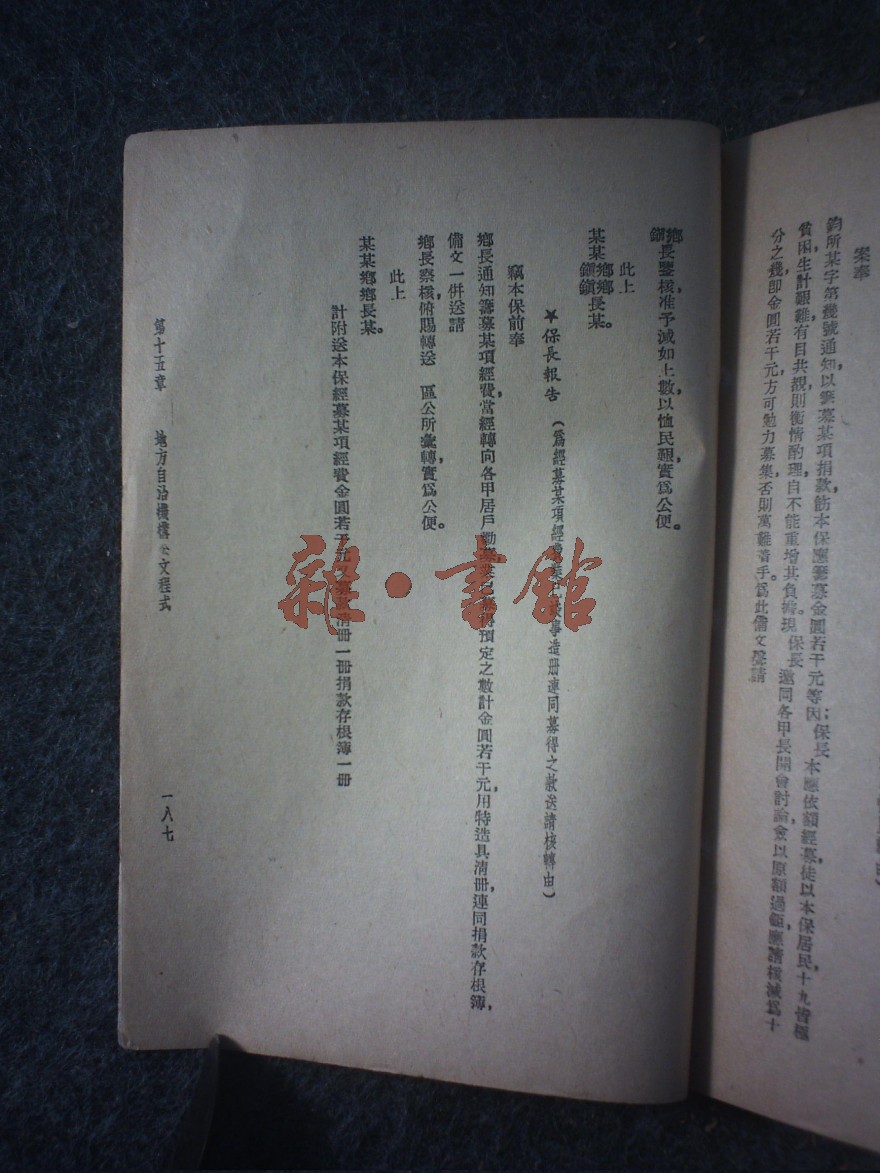 案奉
鈞所某字第幾號通知以籌募某項捐款飭本保應籌募金圓若干元等因;保長本應依額經募,徒以本保居民十九皆極
貧困,生計艱難,有目共覩,則衡情酌理,自不能重增其負擔。現保長邀同各甲長開會討論,僉以原額過鉅,應請核減爲十
分之幾,即金圓若干元,方可勉力募集,否則萬難著手,爲此備文聲請
鄉鎭長鑒核,准予減如上數,以恤民艱,實爲公便。
此上
某某鄉鎭鄉鎭長某。
★保長報告(爲經募某項經費業已竣事造册連同募得之款送請核轉由)
竊本保前奉
鄉長通知籌募某項經費,當經轉向各甲居戶勸募,預定之數計金圓若干元,用特造具清册,連同捐款存根簿,
備文一併送請
鄉長察核,俯賜轉送 區公所彙轉,實爲公便。
此上
某某鄉鄉長某。
計附送本保經募某項經費金圓若干元清册一册捐款存根簿一册
第十五章 地方自治機構公文程式
一八七
雜·書館